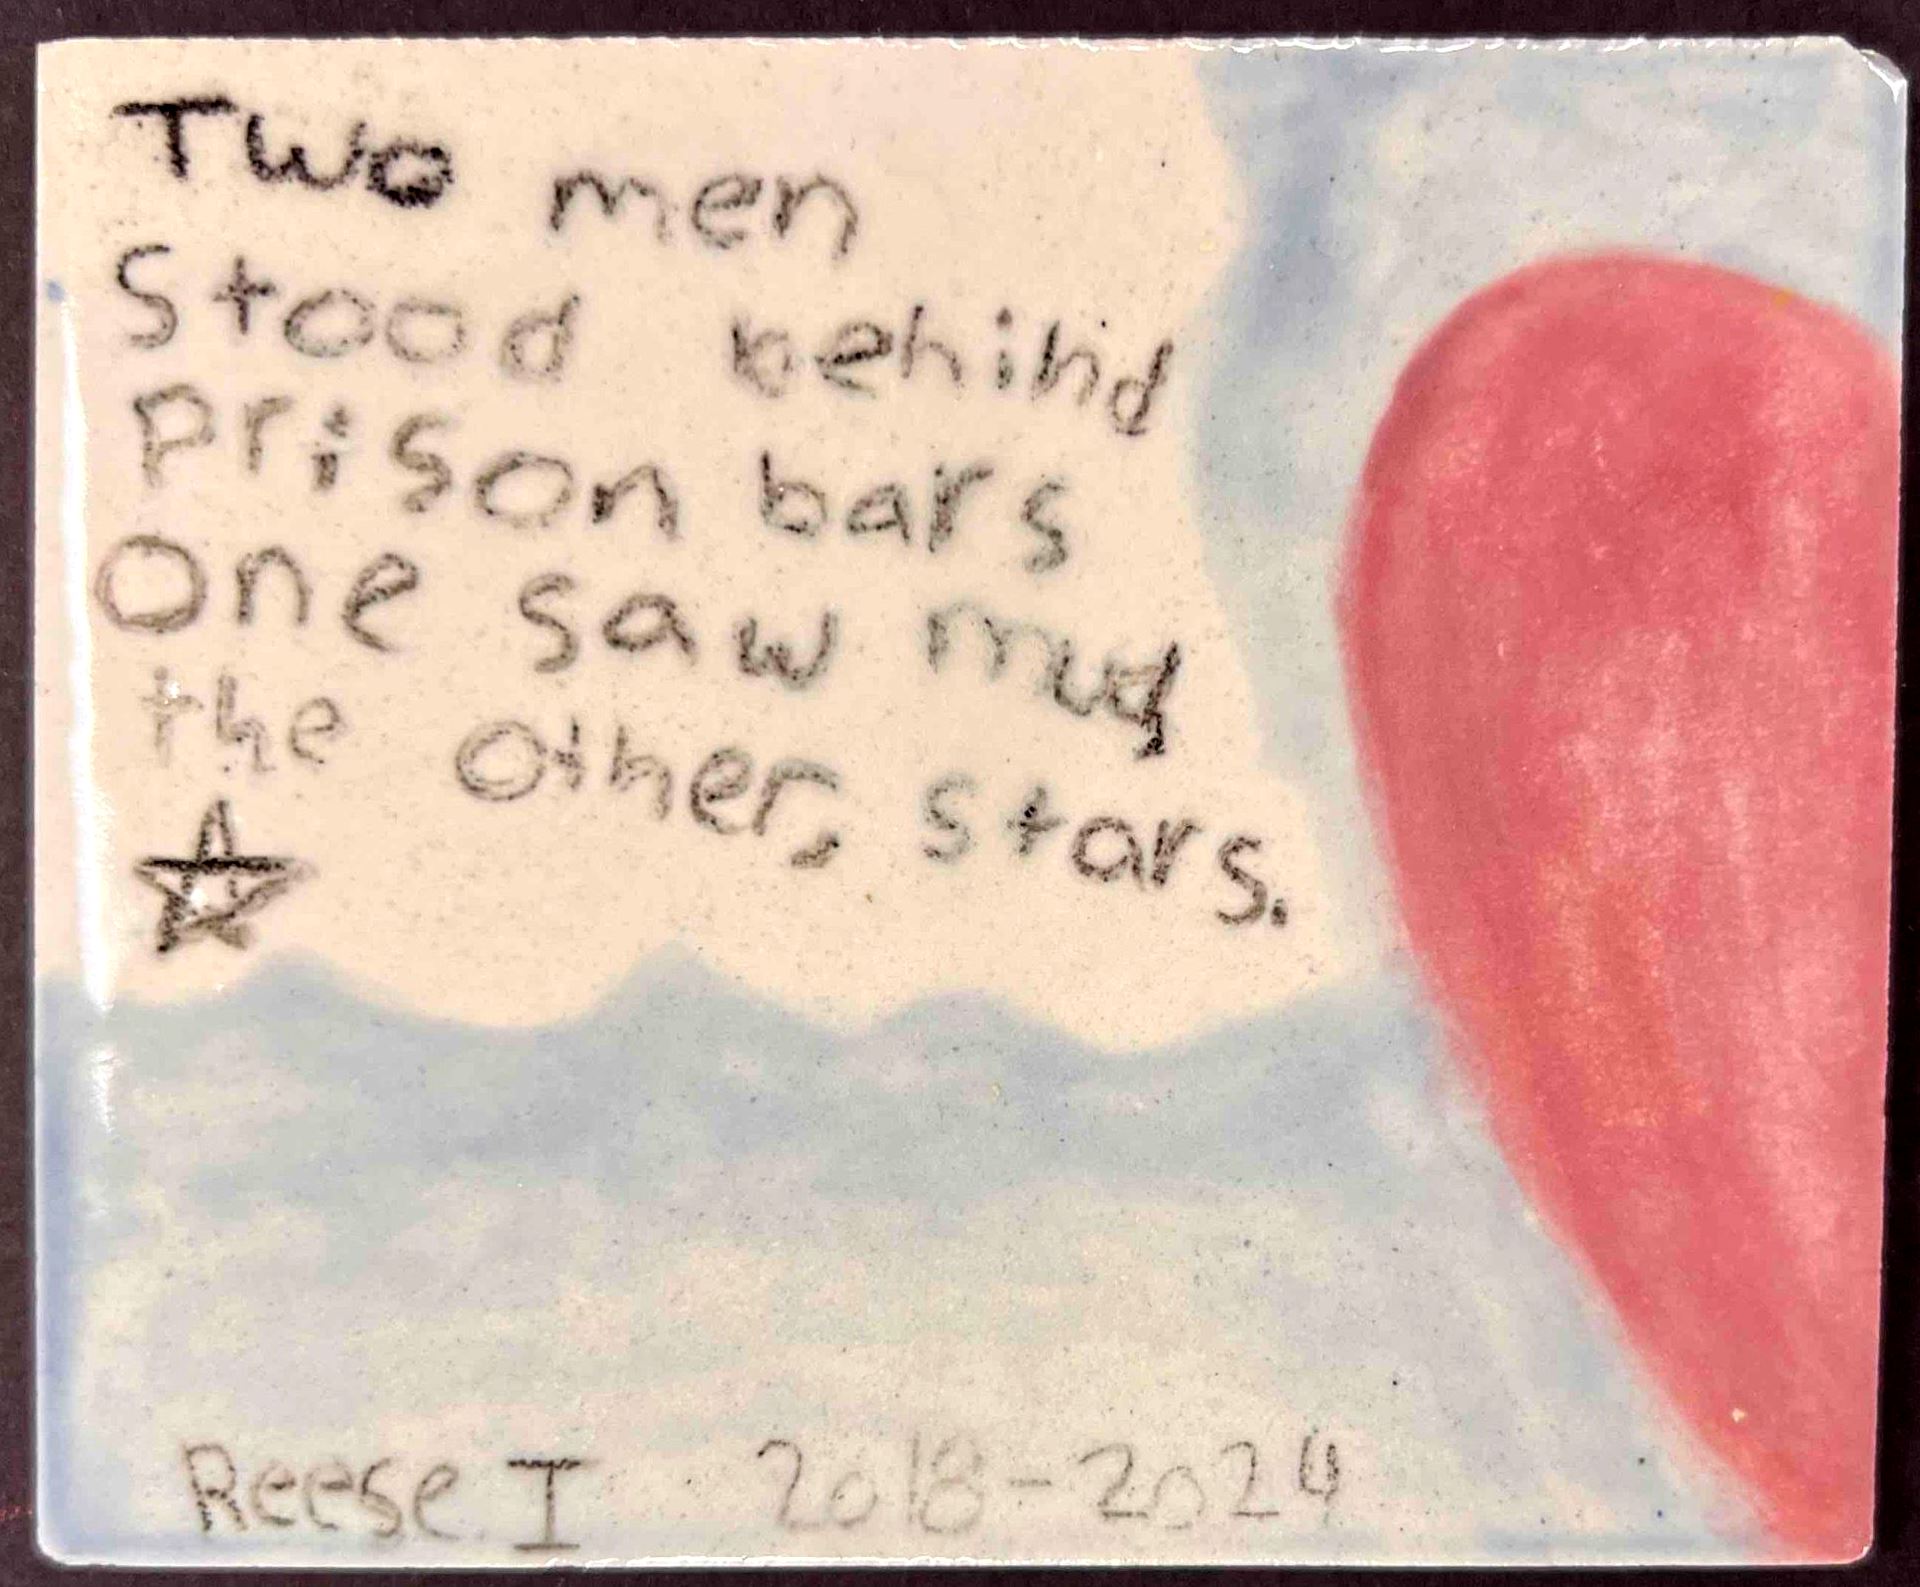 Two men
Stood behind
prison bars
One saw mud
the other, stars.
Reese I 2018-2024